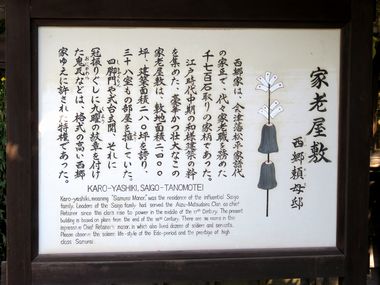 家老屋敷
西郷頼母邸
西郷家は、会津藩松平家譜代
の家臣で、代々家老職を務めた
千七百石取りの家柄であった。
江戸時代中期の和様建築の粋
を集めた、豪華かつ壮大なこの
家老屋敷は、敷地面積二四〇〇
坪、建築面積二八〇坪を誇り、
三十八室もの部屋を擁していた。
四脚門や式台玄関、それに
冠振りぐしに九曜の紋章を付け
た鬼瓦などは、格式の高い西郷
家ゆえに許された特権であった。
KARO-YASHIKI, SAIGO-TANOMOTEI
Karo-yashiki, meaning "Samurai Manor," was the residence of the influential Saigo
family. Leaders of the Saigo family had served the Aizu-Matsudaira Clan as chief
Retainer since this clan's rise to power in the middle of the 17th Century. The present
building is based on plans from the end of the 18th century. There are 38 rooms in this
impressive Chief Retainer's manor, in which also lived dozens of soldiers and servants.
Please observe the solemn life-style of the Edo-period and the prestige of high
class Samurai.